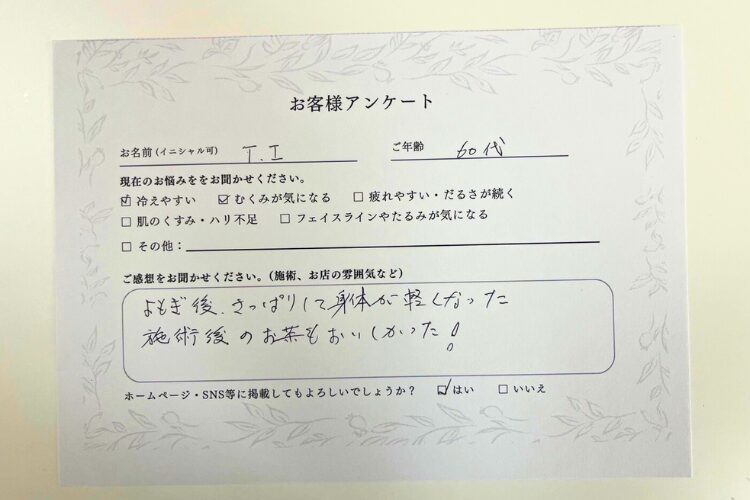 お客様アンケート
お名前(イニシャル可) T.I ご年齢 60代
現在のお悩みををお聞かせください。
☑ 冷えやすい ☑ むくみが気になる □ 疲れやすい・だるさが続く
□ 肌のくすみ・ハリ不足 □ フェイスラインやたるみが気になる
□ その他：
ご感想をお聞かせください。(施術、お店の雰囲気など)
よもぎ後、さっぱりして身体が軽くなった
施術後のお茶もおいしかった!
ホームページ・SNS等に掲載してもよろしいでしょうか？ ☑ はい □ いいえ